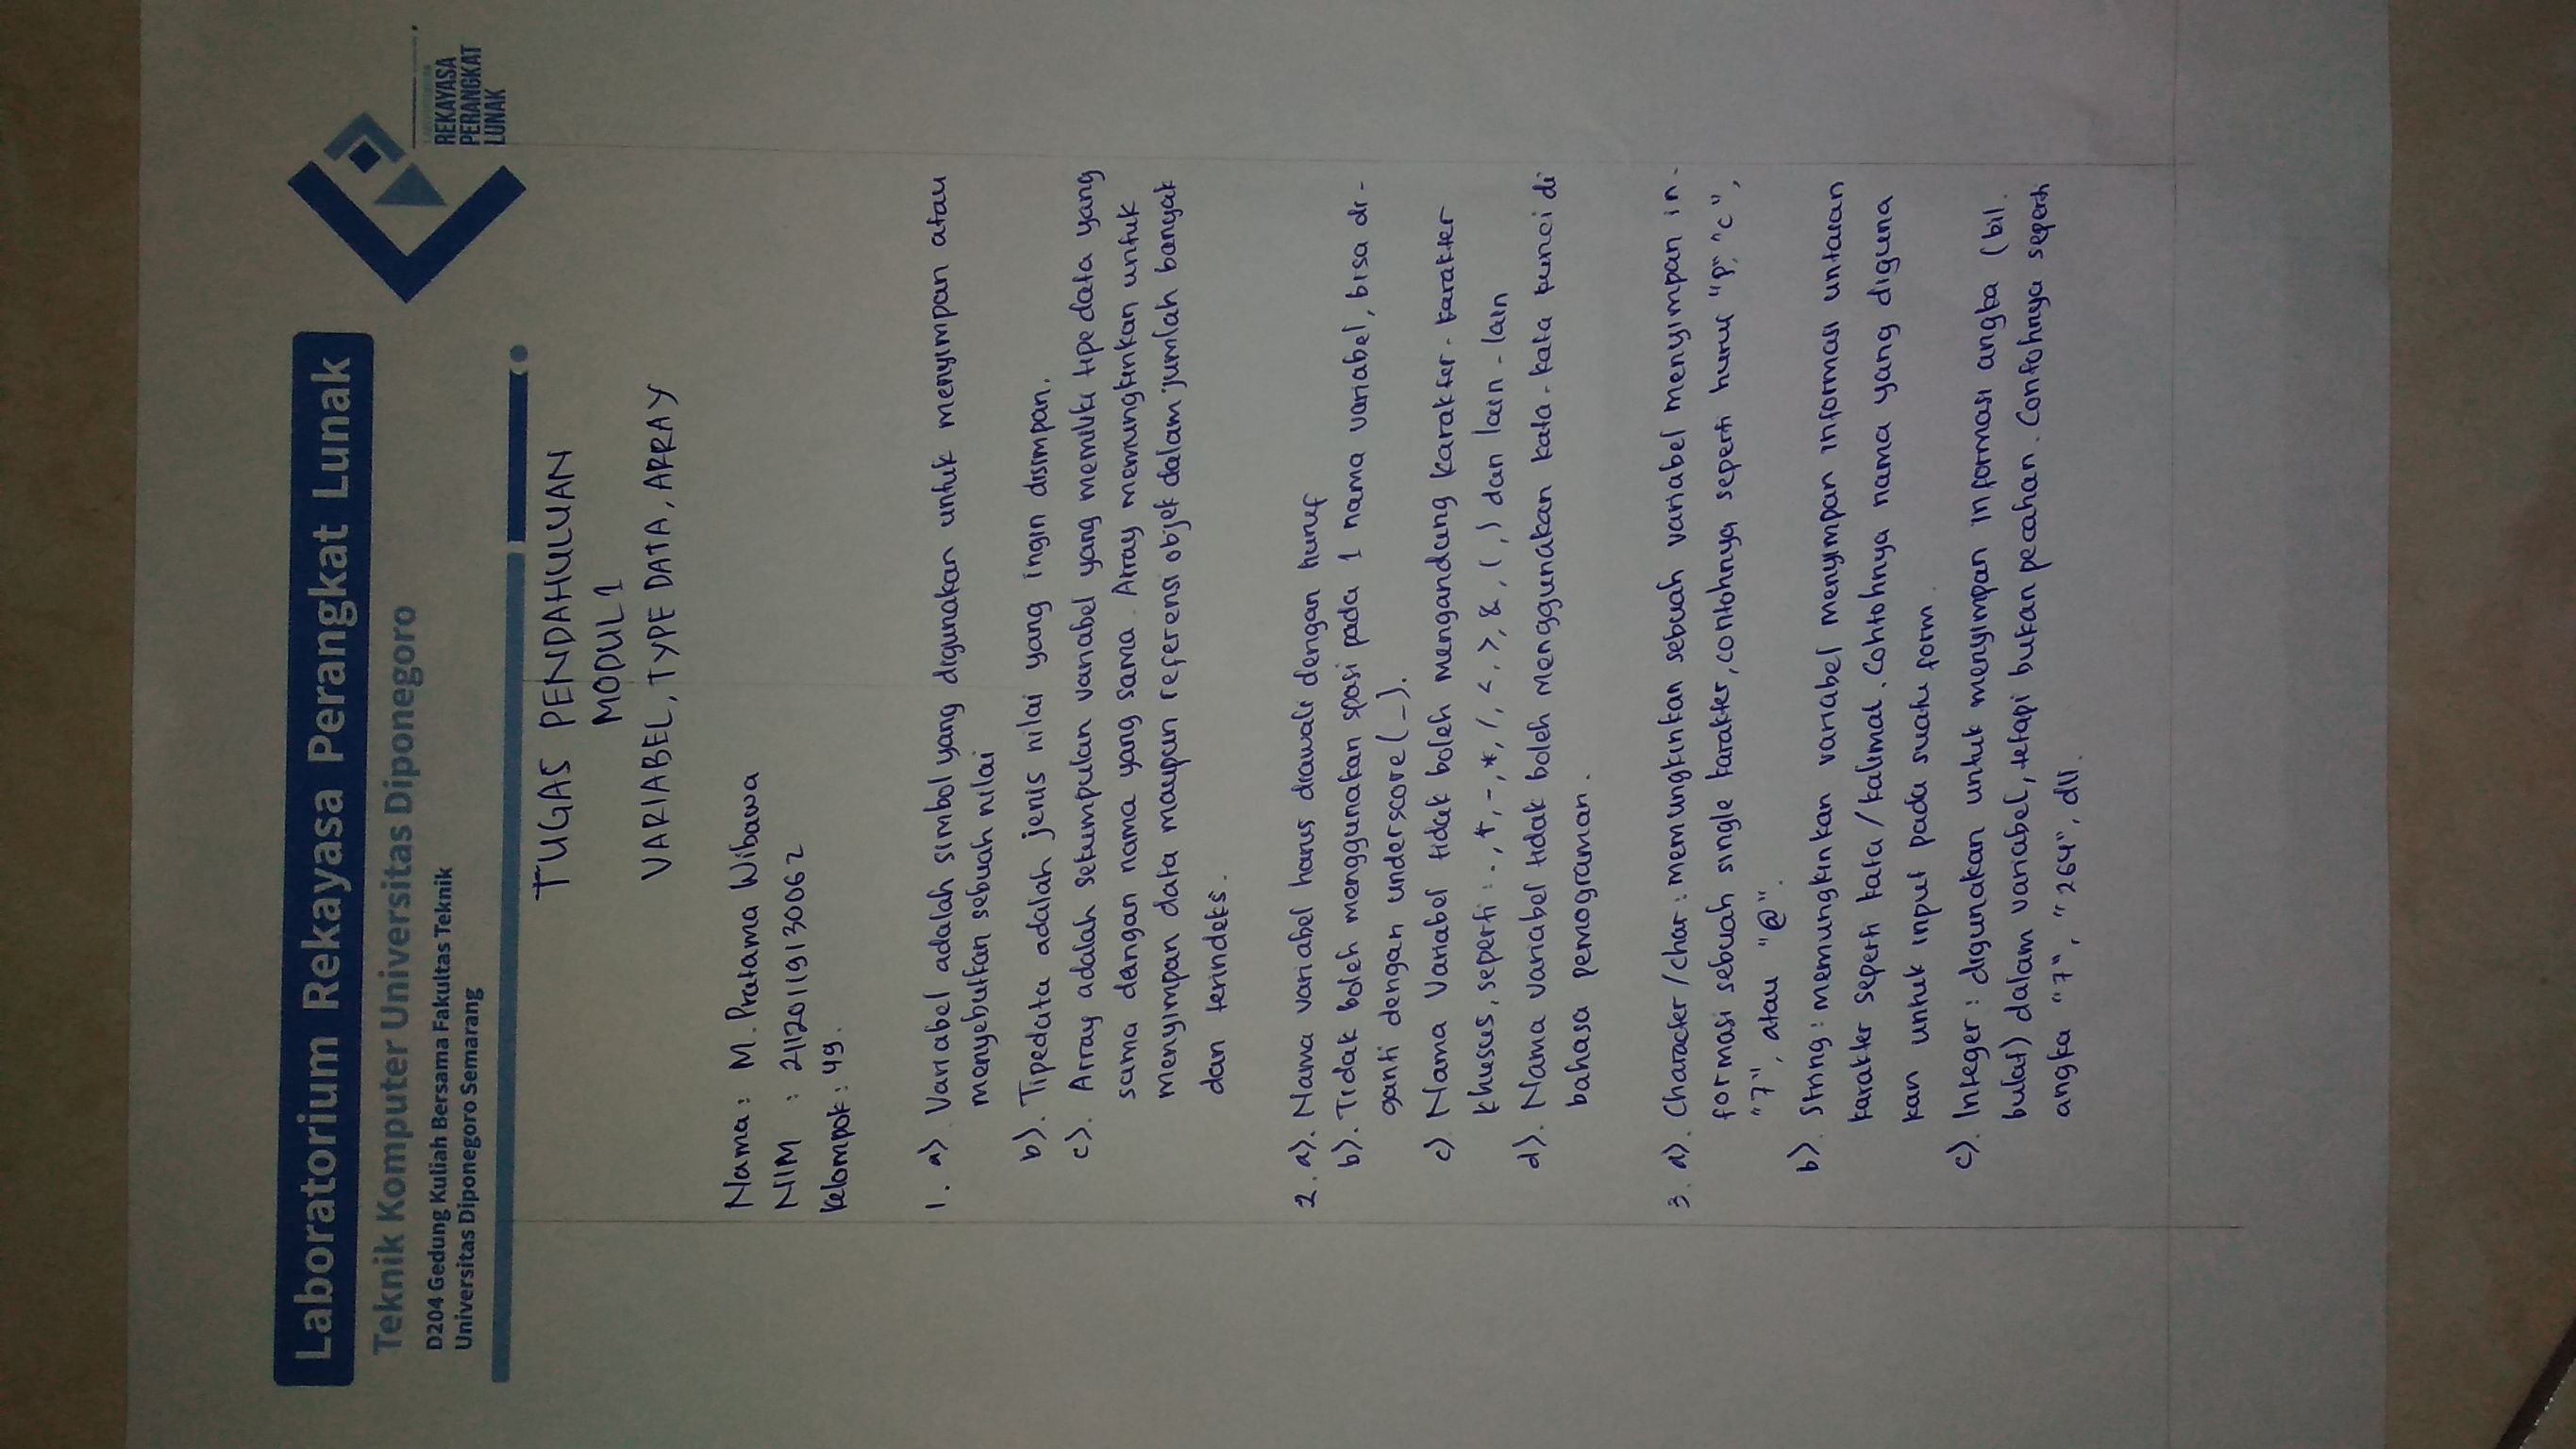 Laboratorium Rekayasa Perangkat Lunak
Teknik Komputer Universitas Diponegoro
D204 Gedung Kuliah Bersama Fakultas Teknik
Universitas Diponegoro Semarang
REKAYASA
PERANGKAT
LUNAK
TUGAS PENDAHULUAN
MODUL 1
VARIABEL, TYPE DATA, ARRAY
Nama : M. Pratama Wibawa
NIM : 21120119130062
Kelompok : 49.
1. a). Variabel adalah simbol yang digunakan untuk menyimpan atau
menyebutkan sebuah nilai
b). Tipedata adalah jenis nilai yang ingin disimpan.
c). Array adalah sekumpulan variabel yang memiliki tipe data yang
sama dengan nama yang sama. Array memungkinkan untuk
menyimpan data maupun referensi objek dalam jumlah banyak
dan terindeks.
2. a). Nama variabel harus diawali dengan huruf
b). Tidak boleh menggunakan spasi pada 1 nama variabel, bisa di-
ganti dengan underscore (_).
c) Nama Variabel tidak boleh mengandung karakter-karakter
khusus, seperti : ., +, -, *, /, <, >, &, (, ) dan lain-lain
d). Nama variabel tidak boleh menggunakan kata-kata kunci di
bahasa pemograman.
3. a). Character/char : memungkinkan sebuah variabel menyimpan in-
formasi sebuah single karakter, contohnya seperti huruf "P", "c",
"7", atau "@".
b). String : memungkinkan variabel menyimpan informasi untaian
karakter seperti kata/kalimat. Cohtohnya nama yang diguna
kan untuk input pada suatu form.
c). Integer : digunakan untuk menyimpan informasi angka (bil.
bulat) dalam variabel, tetapi bukan pecahan. Contohnya seperti
angka "7", "264", dll.